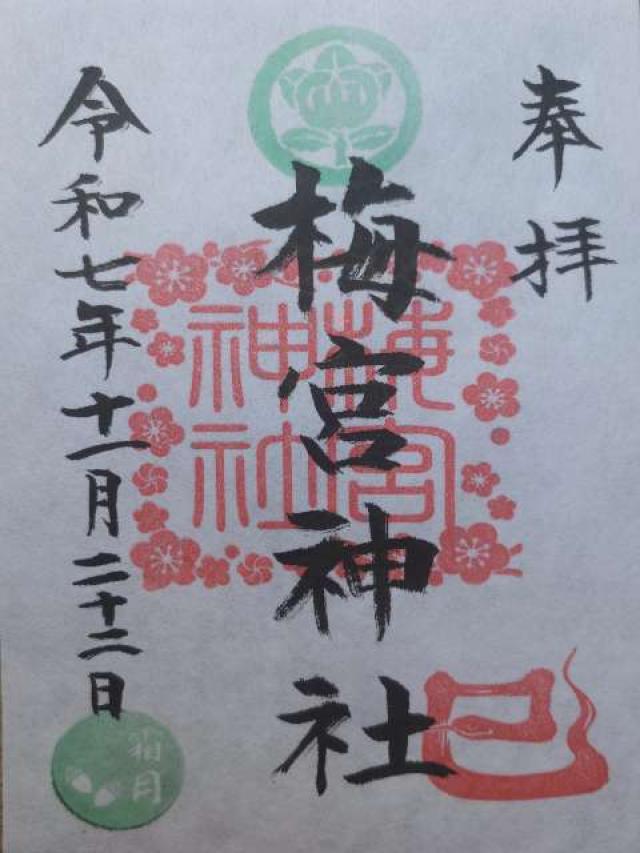 奉拝
梅宮神社
梅宮神社
令和七年十一月二十二日
巳
霜月